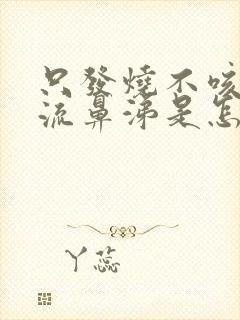 只發燒不咳
流鼻涕是怎
丫蕊